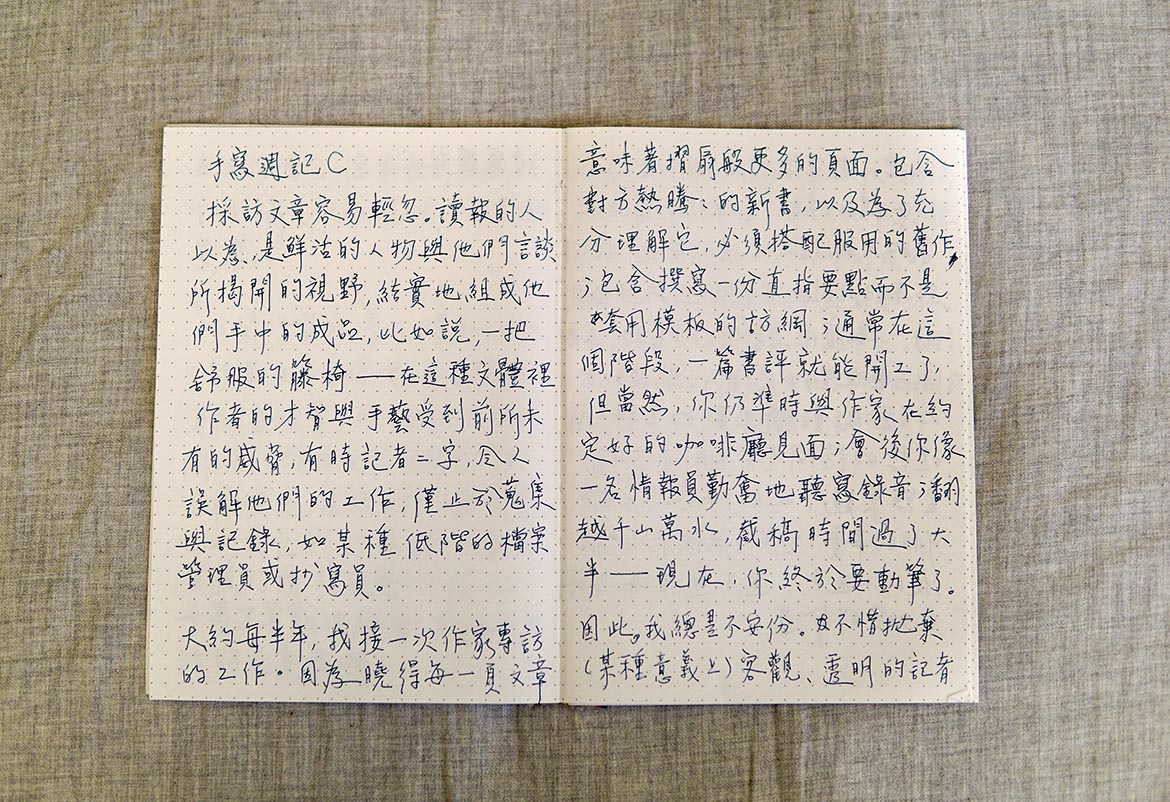 手寫週記C
採訪文章容易輕忽。讀報的人
以為,是鮮活的人物與他們言談
所揭開的視野,結實地組成他
們手中的成品,比如說,一把
舒服的籐椅——在這種文體裡
作者的才智與手藝受到前所未
有的威脅,有時記者二字,令人
誤解他們的工作,僅止於蒐集
與記錄,如某種低階的檔案
管理員或抄寫員。
大約每半年,我接一次作家專訪
的工作。因為曉得每一頁文章
意味著摺扇般更多的頁面。包含
對方熱騰騰的新書,以及為了充
分理解它,必須搭配服用的舊作
;包含撰寫一份直指要點而不是
套用模板的訪綱;通常在這
個階段,一篇書評就能開工了,
但當然,你仍準時與作家在約
定好的咖啡廳見面;會後你像
一名情報員勤奮地聽寫錄音;翻
越千山萬水,截稿時間過了大
半——現在,你終於要動筆了。
因此,我總是不安份。不惜拋棄
(某種意義上)客觀、透明的記者